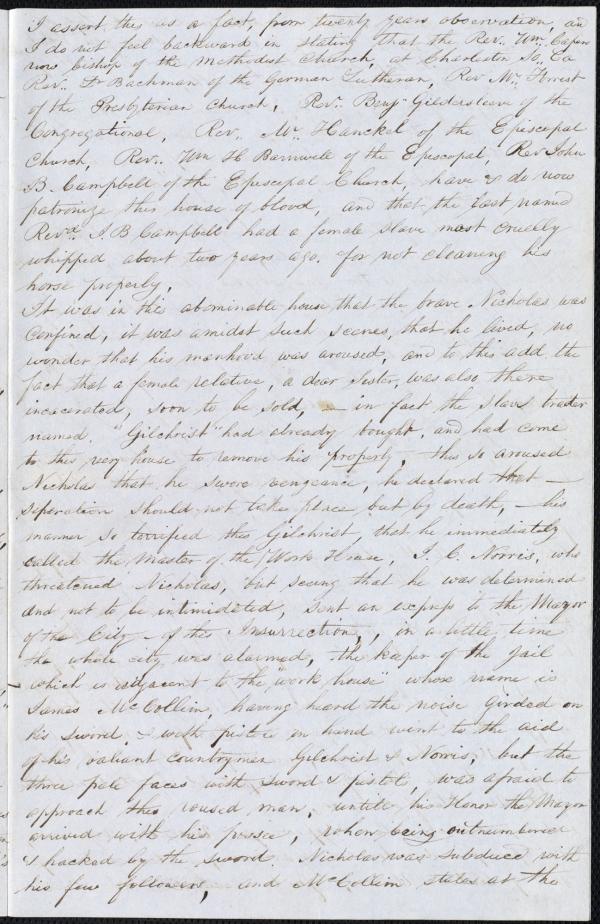 I assert this as a fact, from twenty years observation, and
I do not feel backward in stating that the Rev.. Wm. Capers
now bishop of the Methodist Church, at Charleston So. Ca
Rev.. Dr Bachman of the German Lutheran, Rev Mr. Forrest
of the Presbyterian Church, Rev.. Benj. Gildersleave of the
Congregational, Rev.. Mr. Hanckel of the Episcepal
Church, Rev.. Wm H Barnwell of the Episcopal, Rev John
B. Campbell of the Episcepal Church, have & do now
patronize this house of blood, and that the last named
Revd. J B Campbell had a female slave most cruelly
whipped about two years ago, for not cleaning his
horse properly.
It was in this abominable house that the brave. Nicholas was
confined, it was amidst such scenes, that he lived, no
wonder that his manhood was aroused, and to this add the
fact that a female relative, a dear sister, was also there
incacerated, soon to be sold, — in fact the slave trader
named. "Gilchrist" had already bought, and had come
to this very house to remove his property, this so aroused
Nicholas that he swore vengeance, he declared that —
seperation should not take place but by death, — his
manner so torrified this Gilchrist, that he immediately
called the Master of the Work House, J. C. Norris, who
threatened Nicholas, but seeing that he was determined
and not to be intimidated, sent an express to the Mayor
of the City — of this Insurrection,, in a little time
the whole city was alarmed, the keeper of the Jail
which is adjacent to the work house" whose name is
James McCollim, having heard the noise Girded on
his sword. & with pistol in hand went to the aid
of his valiant countrymen Gilchrist & Norris, but the
three pale faces with sword & pistols, was afraid to
approach this roused man, untill his Honor the Mayor
arrived with his possee, when being outnumbered
& hacked by the sword, Nicholas was subdued with
his few followers, and McCollim states at the